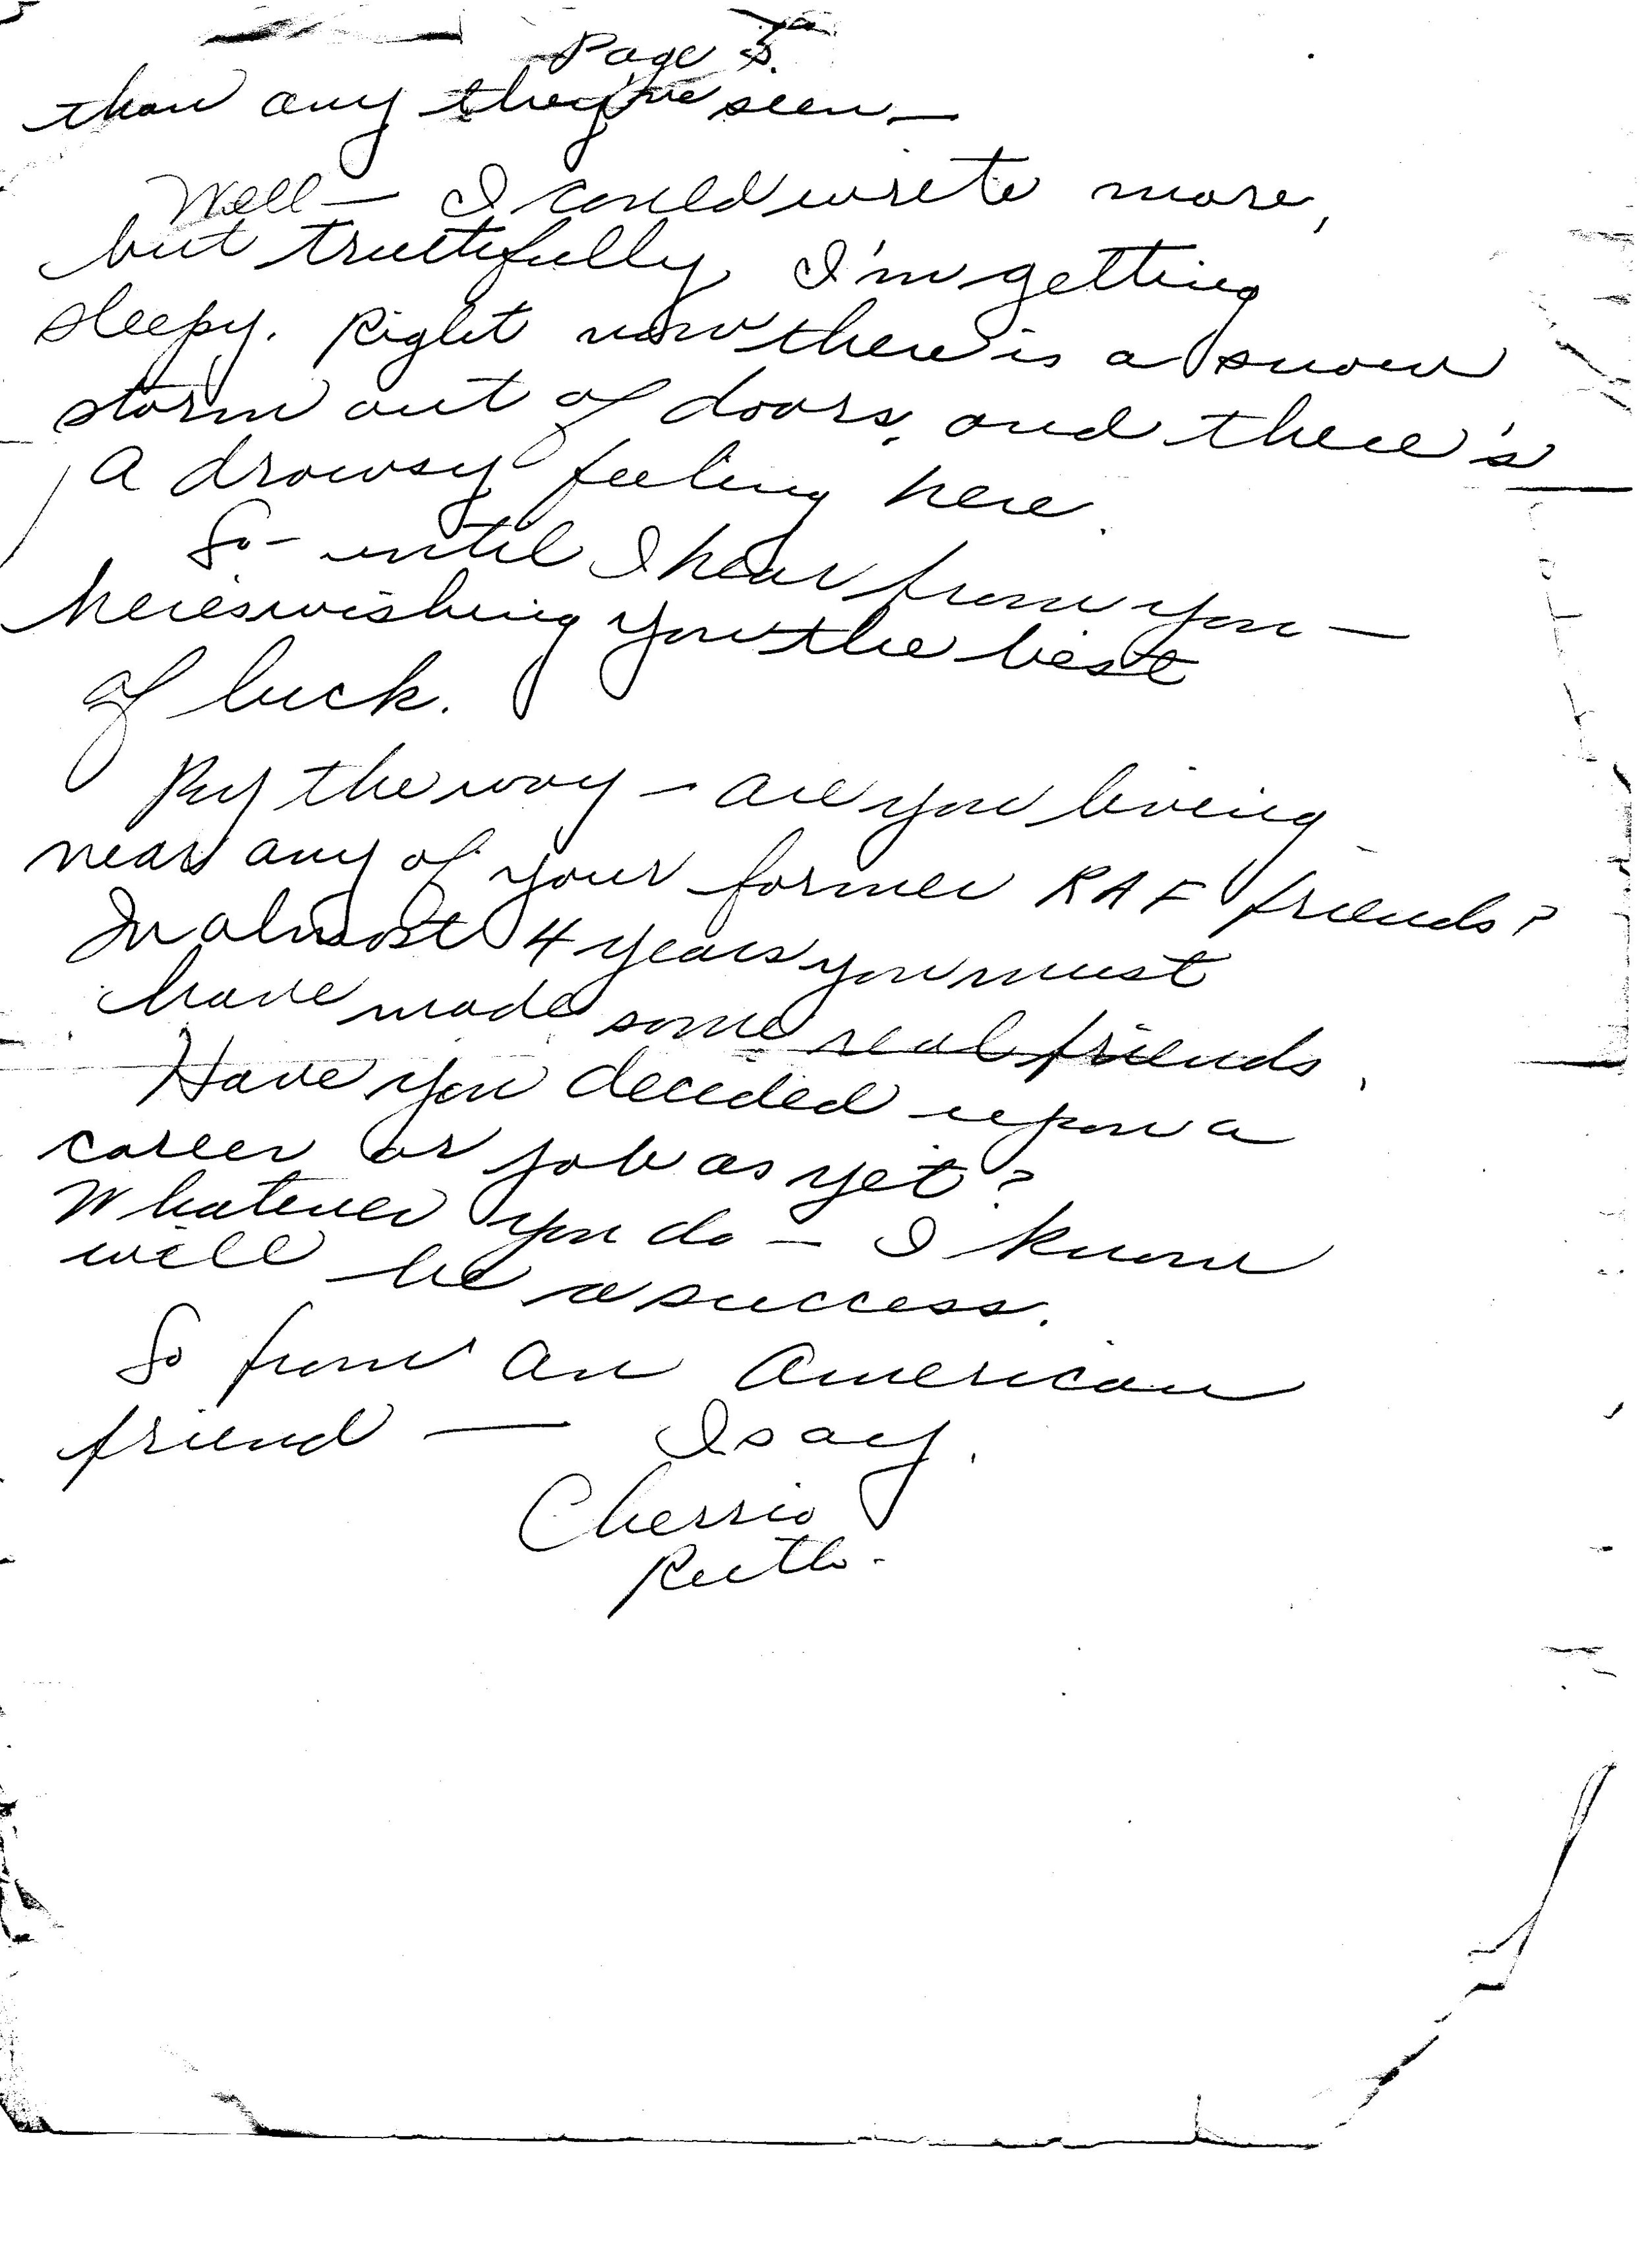 Page 5.
than any they've seen —
Well — I could write more,
but truthfully I'm getting
sleepy. Right now there is a snow
storm out of doors, and there's
a drowsy feeling here.
So - until I hear from you —
here's wishing you the best
of luck.
By the way — are you living
near any of your former RAF friends?
In almost 4 years you must
have made some real friends.
Have you decided upon a
career or job as yet?
Whatever you do — I know
will be a success.
So from an American
friend — I say.
Cherrio
Ruth -